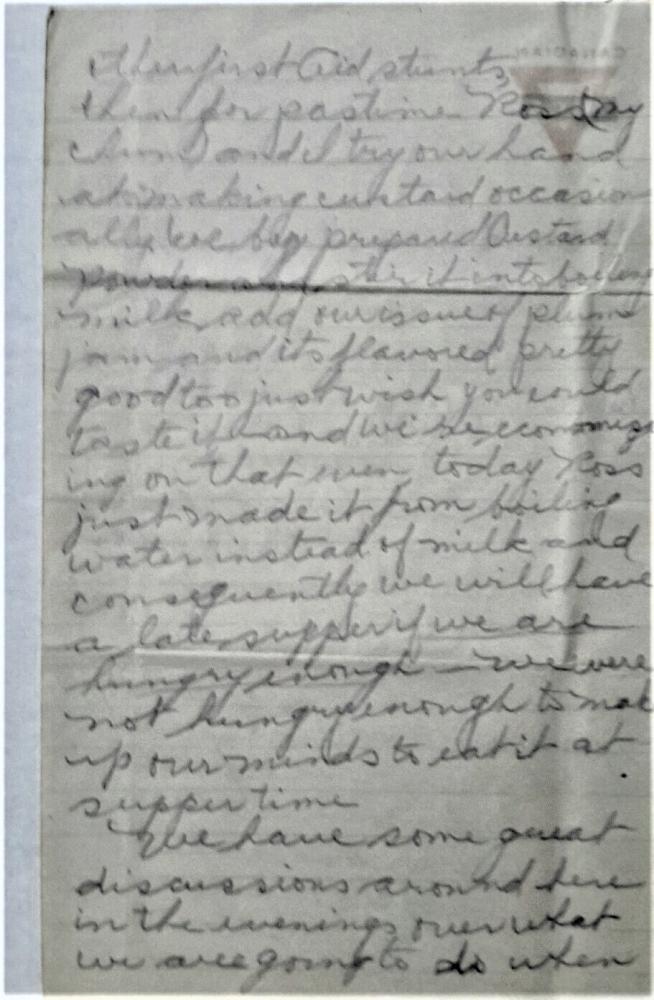 CANADIAN
other first Aid stunts
then for pastime Ross (my
chum) and I try our hand
at making custard occasion
ally we buy prepared Custard
powder and stir it into boiling
milk, add our issue of plum
jam and its flavored pretty
good too just wish you could
taste it and we're economiz
ing on that even today Ross
just made it from boiling
water instead of milk and
consequently we will have
a late supper if we are
hungry enough — we were
not hungry enough to make
up our minds to eat it at
supper time
We have some great
discussions around here
in the evenings over what
we are going to do when